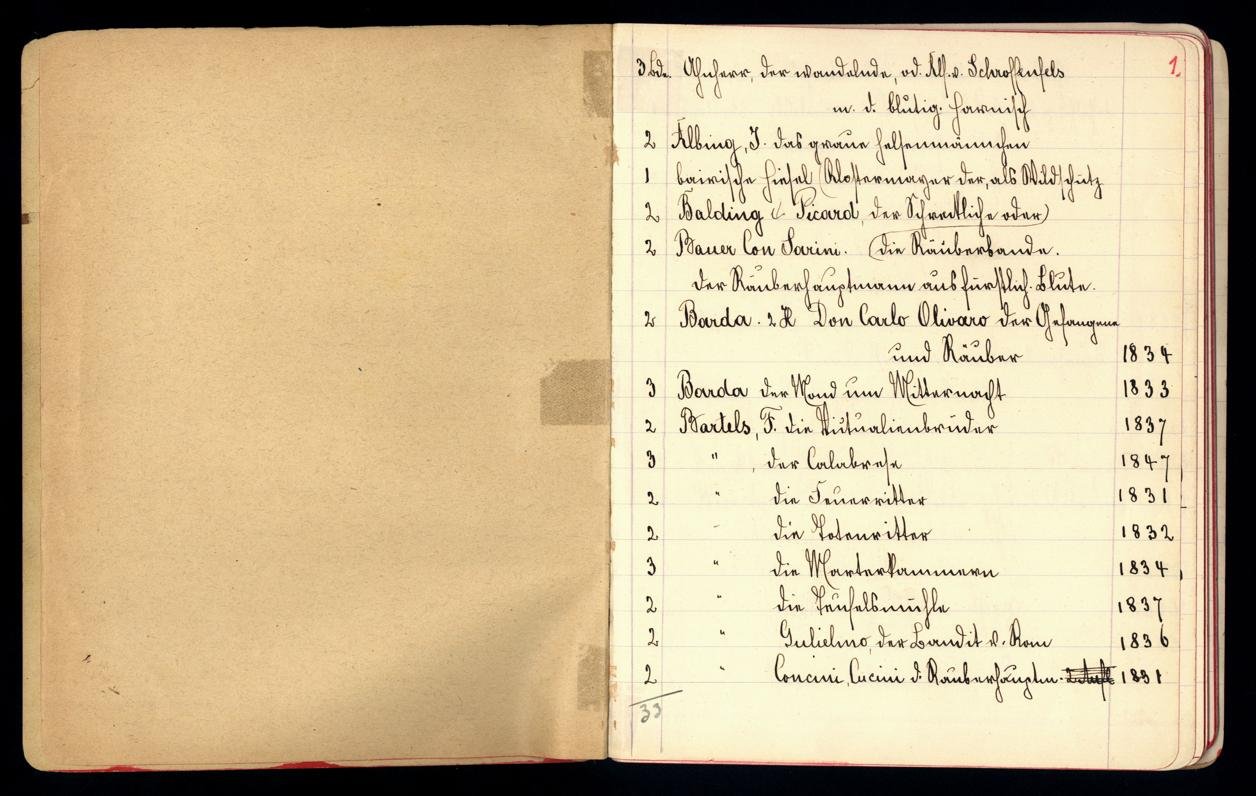 1.
3 bde. Ahnherr, der wandelnde, od. Alf. v. Schroffenfels
m. d. blutig. Harnisch
2 Albing, J. das graue Felsenmännchen
1 bairische Hiesel (Klostermayer der, als Wildschütz
2 Balding & Picard, der Schreckliche oder)
2 Bauer Con Sarini. (die Räuberbande.
der Räuberhauptmann aus fürstlich. Blute.
2 Barda. 2 Don Carlo Olivaro der Gefangene
und Räuber 1834
3 Barda der Mond um Mitternacht 1833
2 Bartels, F. die Vitualienbrüder 1837
3 " , der Calabrese 1847
2 " die Feuerritter 1831
2 " die Totenritter 1832
3 " die Marterkammern 1834
2 " die Teufelsmühle 1837
2 " Gulielmo, der Bandit v. Rom 1836
2 " Concini, Cucini d. Räuberhauptm. 1831
33